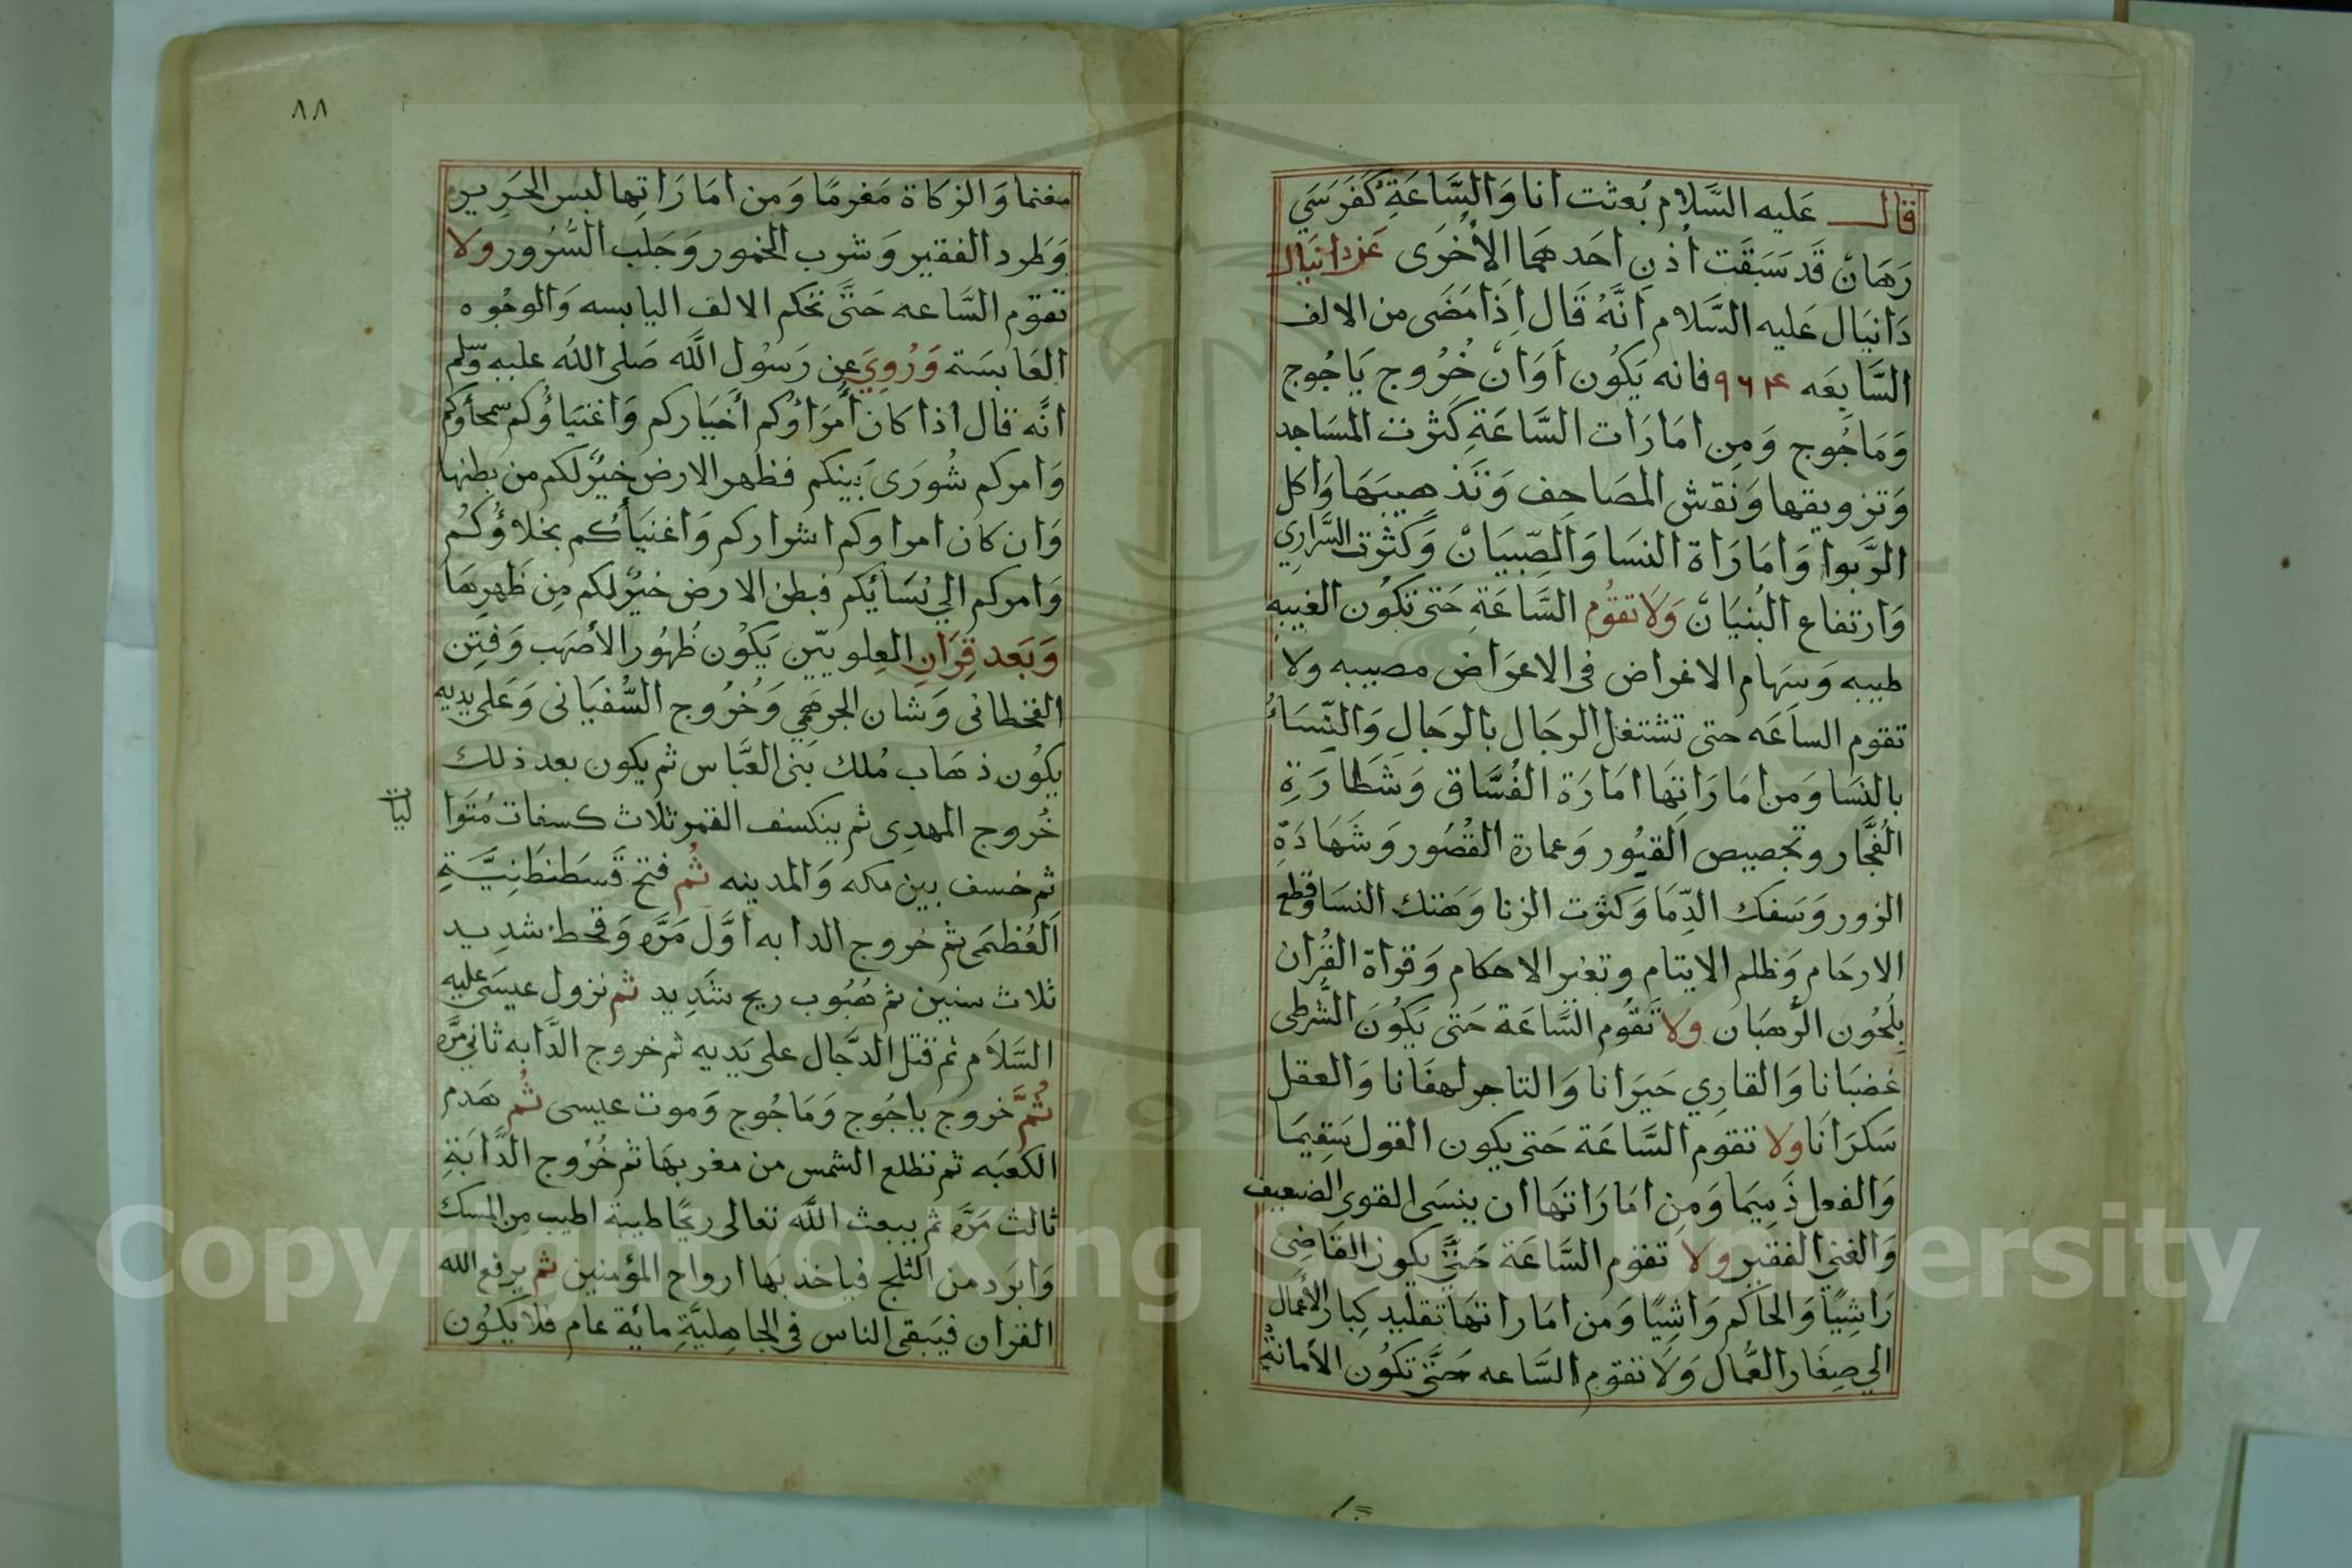 قال عليه السَّلام بُعثت انا وَالسَّاعَةِ كَفَرَسَي
رَهَانْ قَد سَبَقَت أذن احَدهمَا الأخرَى عَن دانيَال
دَانيَال عَليه السَّلام انَّهُ قَال اِذَا مَضَى من الالف
السَّابعَه ٩٦٤ فانه يَكُون اَوَانْ خُرُوج يَاجُوج
وَمَاجُوج وَمِن امَارَات السَّاعَةِ كَثرت المسَاجد
وَتزويقها وَنقش المصَاحِف وَتَذهيبَهَا وَاكل
الرَّبوا وَامَارَاة النسَا وَالصّبيَانْ وَكَثرت السَّرَارِي
وَارتفاع البُنيَانْ وَلَا تقُوم السَّاعَةِ حَتى تكُون الغيبه
طيبه وَسهَام الاغراض في الاعرَاض مصيبه ولا
تقوم الساعَه حتى تشتغل الرجَال بالرجَالِ وَالنِّسَاءُ
بالنسَا وَمن امَارَاتهَا امَارَة الفُسَّاق وَشَطَارَةِ
الفُجَّار وتجصيص القبُور وَعمارة القصُور وَشَهَادَةِ
الزور وَسَفك الدّمَا وَكثرت الزنا وَهَتك النسَا وقطع
الارحَام وَظلم الايتام وتغير الاحكام وَقراة القُران
بلحُون الرُهبَان ولا تَقُوم السَّاعَة حَتى يَكُونَ الشُرطى
غضبَانا وَالقارِي حَيَرَانا وَالتاجر لهفَانا وَالعقل
سَكرَانَا ولا تقوم السَّاعَة حَتى يكون القول سَقِيمَا
وَالفعل ذَميمَا وَمِن امَارَاتهَا ان ينسَى القوي الضعيف
وَالغني الفقير ولا تقوم السَّاعَة حَتَّى يكون القَاضِى
رَاشِيًا وَالحَاكم وَاشِيًا وَمن امَاراتهَا تقليد كِبَار الأعمَال
الي صِغَار العُمَّال وَلَا تقوم السَّاعه حَتَّى تكُون الأمانةِ
٨٨
مغنما وَالزكَاة مَغرمًا وَمن امَارَاتِها لبس الحَرِير
وَطرد الفقير وَشرب الخمور وَجَلب السُّرُور ولا
تقوم السَّاعه حَتَّى تحكم الالف اليابسه وَالوجُوه
العَابسَة وَرُوِيَ عن رَسُول الله صَلى الله عليه وسلم
انَّه قال اذا كان أُمرَاؤكم أخيَاركم وَاغنيَاؤُكم سمحاؤكم
وَامركم شُورَى بَينكم فظهر الارض خيرٌ لكم من بطنها
وَان كان امراوكم اشراركم وَاغنيَأكم بخلاؤُكُم
وَامركم الي نسَائِكم فبطن الارض خيرٌ لكم مِن ظَهرهَا
وَبَعد قِرَانِ العِلويّين يَكُون ظُهُور الأصْهَب وَفتِن
القحطانى وَشان الجرهَمي وَخُرُوج السُّفيَانى وَعَلى يديه
يكُون ذهَاب مُلك بَنى العَّباس ثم يكون بعد ذلك
خُروج المهدِى ثم ينكسف القمر ثلَاث كسفات مُتَوا
ليات
ثم خسف بين مكه وَالمدينه ثُم فتح قَسطنطنِيَّةِ
العُظمَى ثم خروج الدابه اوَّل مَرَّه وَقحط شديد
ثلاث سنين ثم هُبُوب ريح شَدِيد ثم نزول عيسَى عليه
السَّلَام ثم قتل الدَّجَال على يَديه ثم خروج الدَّابه ثاني مرَّه
ثُمَّ خروج يَاجُوج وَمَاجُوج وَموت عيسى ثُم هَدم
الكعبَه ثم تطلع الشمس من مغربهَا ثم خُرُوج الدَّابَةِ
ثالث مَرَّه ثم يبعث الله تعالى ريحًا طيبة اطيب من المسك
وَابرَد من الثلج فياخذ بهَا ارواح المؤمنين ثم يرفع الله
القران فيَبقى الناس في الجاهِليَّةِ مائة عام فلا يكُون
Copyright © King Saud University
1957